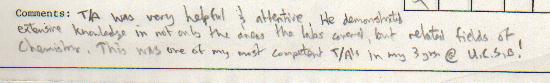 Comments: T/A was very helpful & attentive, He demonstrated
extensive knowledge in not only the areas the labs covered, but related fields of
Chemistry. This was one of my most competent T/A's in my 3 yrs @ U.C.S.B!